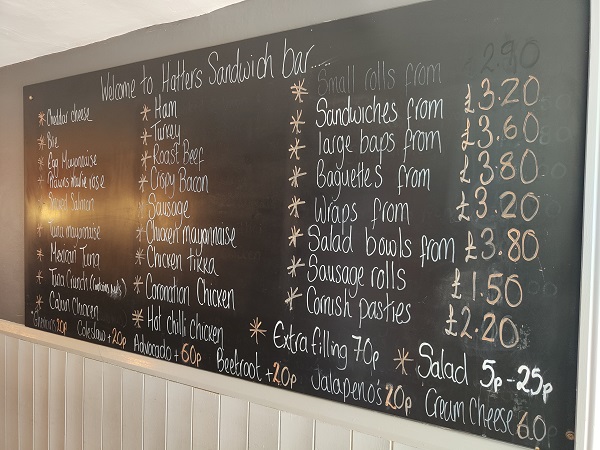 Welcome to Hatters Sandwich bar...
* Cheddar cheese
* Brie
* Egg Mayonnaise
* Prawns marie rose
* Salmon
* Tuna mayonnaise
* Mexican Tuna
* Tuna Crunch
* Cajun Chicken
* Ham
* Turkey
* Roast Beef
* Crispy Bacon
* Sausage
* Chicken mayonnaise
* Chicken tikka
* Coronation Chicken
* Hot chilli chicken
* Small rolls from 2.90
* Sandwiches from £3.20
* large baps from £3.60
* Baguettes from £3.80
* Wraps from £3.20
* Salad bowls from £3.80
* Sausage rolls £1.50
* Cornish pasties £2.20
* Extra filling 70p * Salad 5p-25p
20p Coleslaw +20p Advocado +60p Beetroot +20p Jalapeno's 20p Cream Cheese 60